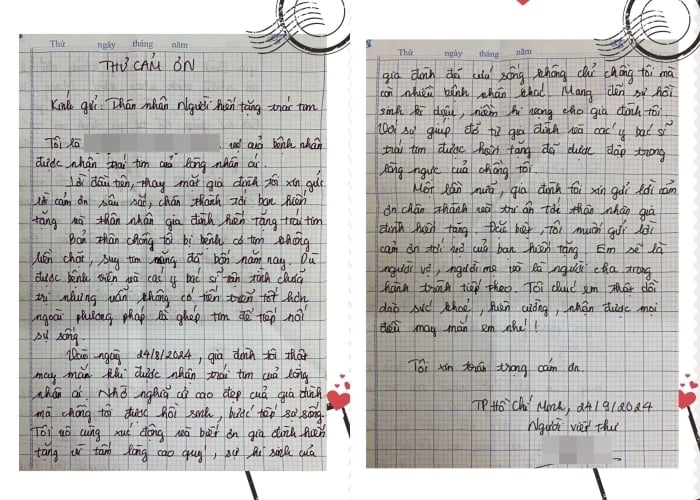 Thứ ngày tháng năm
THƯ CẢM ƠN
Kính gửi: Thân nhân Người hiến tặng trái tim
Tôi là vợ của bệnh nhân
được nhận trái tim của lòng nhân ái.
Lời đầu tiên, thay mặt gia đình tôi xin gửi
lời cảm ơn sâu sắc, chân thành tới bạn hiến
tặng và thân nhân gia đình hiến tặng trái tim.
Bản thân chồng tôi bị bệnh cơ tim không
liên chặt, suy tim nặng đã bốn năm nay. Dù
được bệnh viện và các y bác sĩ tận tình chữa
trị nhưng vẫn không có tiến triển tốt hơn
ngoài phương pháp là ghép tim để tiếp nối
sự sống.
Vào ngày 24/8/2024, gia đình tôi thật
may mắn khi được nhận trái tim của lòng
nhân ái. Nhờ nghĩa cử cao đẹp của gia đình
mà chồng tôi được hồi sinh, bước tiếp sự sống.
Tôi vô cùng xúc động và biết ơn gia đình hiến
tặng vì tấm lòng cao quý, sự hi sinh của
Thứ ngày tháng năm
gia đình đã cứu sống không chỉ chồng tôi mà
còn nhiều bệnh nhân khác. Mang đến sự hồi
sinh kì diệu, niềm hi vọng cho gia đình tôi.
Với sự giúp đỡ từ gia đình và các y bác sĩ
trái tim được hiến tặng đã được đập trong
lồng ngực của chồng tôi.
Một lần nữa, gia đình tôi xin gửi lời cảm
ơn chân thành và tri ân tới thân nhân gia
đình hiến tặng. Đặc biệt, tôi muốn gửi lời
cảm ơn tới vợ của bạn hiến tặng. Em sẽ là
người vợ, người mẹ và là người cha trong
hành trình tiếp theo. Tôi chúc em thật dồi
dào sức khoẻ, kiên cường, nhận được mọi
điều may mắn em nhé!
Tôi xin trân trọng cảm ơn.
TP Hồ Chí Minh, 24/9/2024
Người viết thư